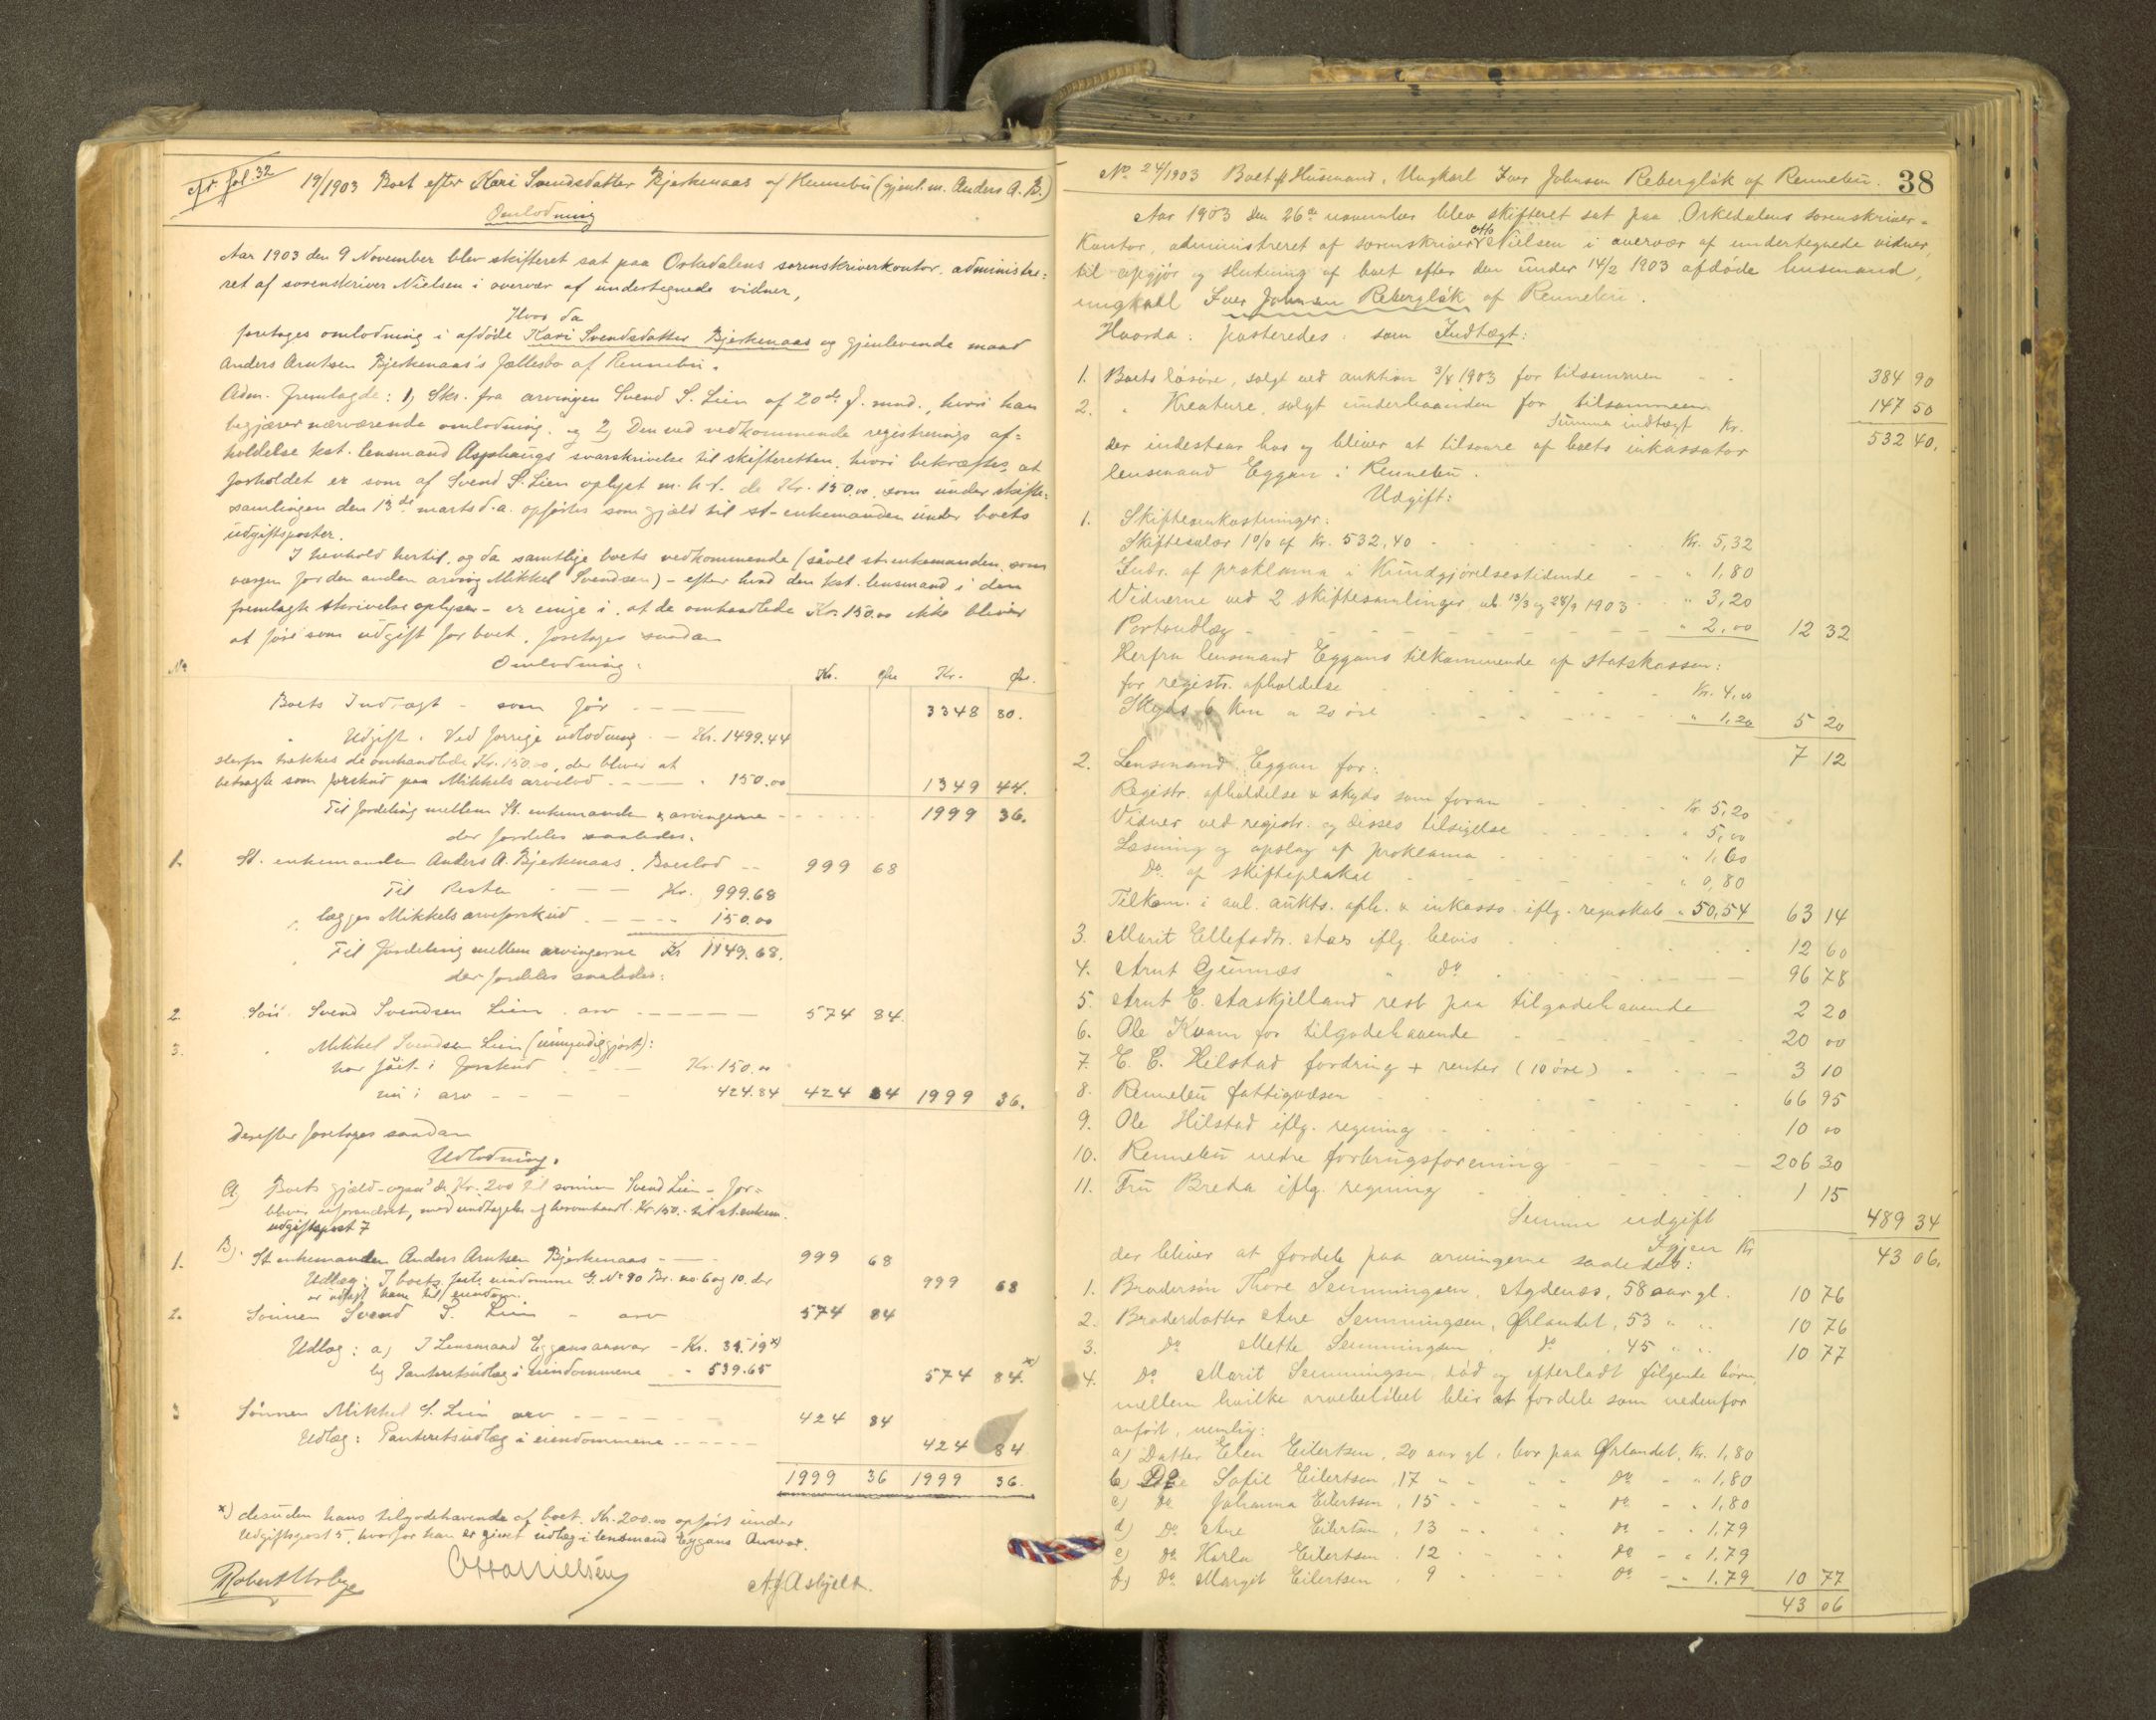 cfr. fol. 32
19/1903 Boet efter Kari Svendsdatter Bjerkenaas af Rennebu (gjenl. m. Anders A. B.)
Omlodning
Aar 1903 den 9 November blev skifteret sat paa Orkedalens sorenskriverkontor, administre=
ret af sorenskriver Nielsen i overvær af undertegnede vidner,
Hvor da
foretoges omlodning i afdøde Kari Svendsdatter Bjerkenaas og gjenlevende mand
Anders Arntsen Bjerkenaas's fællesbo af Rennebu.
Adm. fremlagde: 1) Skr. fra arvingen Svend S. Lien af 20de f. mnd., hvori han
begjærer nærværende omlodning, og 2) Den ved vedkommende registrerings af=
holdelse kst. lensmand Asphaugs svarskrivelse til skifteretten, hvori bekræftes, at
forholdet er som af Svend S. Lien oplyst m. h. t. de Kr. 150.00, som under skifte=
samlingen den 13de marts d. a. opførtes som gjæld til st. enkemanden under boets
udgiftsposter.
I henhold hertil, og da samtlige boets vedkommende (såvel st. enkemanden som
værgen for den anden arving Mikkel Svendsen) - efter hvad den kst. lensmand i den
fremlagte skrivelse oplyser - er enige i, at de omhandlede Kr. 150.00 ikke bliver
at føre som udgift for boet, foretoges saadan
Omlodning:
No Kr. Øre Kr. Øre.
Boets Indtægt - som før - 3348 80.
" Udgift. Ved forrige udlodning - Kr. 1499.44
Herfra trækkes de omhandlede Kr. 150.00, der bliver at
betragte som forskud paa Mikkels arvelod - " 150.00 1349 44.
Til fordeling mellem st. enkemanden & arvingerne 1999 36.
der fordeles saaledes:
1. St. enkemanden Anders A. Bjerkenaas, Boeslod - 999 68
Til Resten - Kr. 999.68
lægges Mikkels arveforskud - " 150.00
Til fordeling mellem arvingerne Kr 1149.68.
der fordeles saaledes:
2. Søn Svend Svendsen Lien, arv - 574 84.
3. " Mikkel Svendsen Lien (umyndiggjort):
har fået i forskud - Kr. 150.00
nu i arv - 424.84 424 84 1999 36.
Derefter foretoges saadan
Udlodning.
A) Boets gjæld - også de Kr. 200 til sønnen Svend Lien - for=
bliver uforandret, med undtagelse af heromhandl. Kr. 150.- til st. enkem.
udgiftspost 7
B).
1. St. enkemanden Anders Arntsen Bjerkenaas - 999 68
Udlæg: I boets faste eiendomme G. No 90 Br. no. 6 og 10. der
er udlagt ham til eiendom. 999 68
2. Sønnen Svend S. Lien - arv 574 84
Udlæg: a) I Lensmand Eggans ansvar - Kr. 35.19 x)
b) Panteretsudlæg i eiendommene - " 539.65 574 84. x)
3 Sønnen Mikkel S. Lien arv - 424 84
Udlæg: Panteretsudlæg i eiendommene - 424 84
1999 36 1999 36.
x) desuden hans tilgodehavende af boet, Kr. 200.00 opført under
Udgiftspost 5, hvorfor han er givet udlæg i lensmand Eggans Ansvar.
Otto Nielsen
No 24/1903 Boet ft Husmand, Ungkarl Iver Johnsen Rebergløk af Rennebu. 38
Aar 1903 den 26de november blev skifteret sat paa Orkedalens sorenskriver-
Kontor, administreret af sorenskriver Otto Nielsen i overvær af undertegnede vidner,
til opgjør og slutning af boet efter den under 14/2 1903 afdøde husmand,
ungkarl Iver Johnsen Rebergløk af Rennebu.
Hvorda: posteredes som Indtægt:
1. Boets løsøre, solgt ved auktion 3/4 1903 for tilsammen - 384 90
2. " Kreature, solgt underhaanden for tilsammen 147 50
Summa indtægt Kr. 532 40.
der indestaar hos og bliver at tilsvare af boets inkassator
lensmand Eggan i Rennebu.
Udgift:
1. Skifteomkostninger:
Skiftesalær 1 0/0 af Kr. 532,40 - Kr. 5,32
Indr. af proklama i Kundgjørelsestidende - " 1,80
Vidnerne ved 2 skiftesamlinger, ul. 13/3 og 28/9 1903 " 3,20
Portoudlæg - " 2,00 12 32
Herfra lensmand Eggans tilkommende af statskassen:
for registr. afholdelse Kr. 4,00
Skyds 6 km a 20 øre " 1,20 5 20
7 12
2. Lensmand Eggan for:
Registr. afholdelse & skyds som foran Kr. 5,20
Vidner ved registr. og disses tilsigelse " 5,00
Læsning og opslag af proklama " 1,60
Do. af skifteplakat " 0,80
Tilkom. i anl. aukts. afh. & inkasso iflg. regnskab " 50,54 63 14
3. Marit Ellefsdtr. Aas iflg. bevis 12 60
4. Arnt Gunnes " do 96 78
5. Arnt E. Aaskjelland rest paa tilgodehavende 2 20
6. Ole Kvam for tilgodehavende 20 00
7. E. E. Hilstad fordring + renter (10 øre) 3 10
8. Rennebu fattigvæsen 66 95
9. Ole Hilstad iflg. regning 10 00
10. Rennebu nedre forbrugsforening 206 30
11. Fru Breda iflg. regning 1 15
Summa udgift 489 34
Igjen Kr 43 06.
der bliver at fordele paa arvingerne saaledes:
1. Brodersøn Thore Semmingsen, Agdenes, 58 aar gl. 10 76
2. Broderdatter Ane Semmingsen, Ørlandet, 53 " " 10 76
3. Do Mette Semmingsen, do 45 " " 10 77
4. Do Marit Semmingsen, død og efterladt følgende børn,
mellem hvilke arvebeløbet blir at fordele som nedenfor
anført, nemlig:
a) Datter Elen Eilertsen, 20 aar gl, bor paa Ørlandet, Kr. 1,80
b) Do Sofie Eilertsen, 17 " " " do - " 1,80
c) do Johanna Eilertsen, 15 " " " do - " 1,80
d) Do Ane Eilertsen, 13 " " " do - " 1,79
e) do Karla Eilertsen, 12 " " " do - " 1,79
f) do Margit Eilertsen, 9 " " " do - " 1,79 10 77
43 06